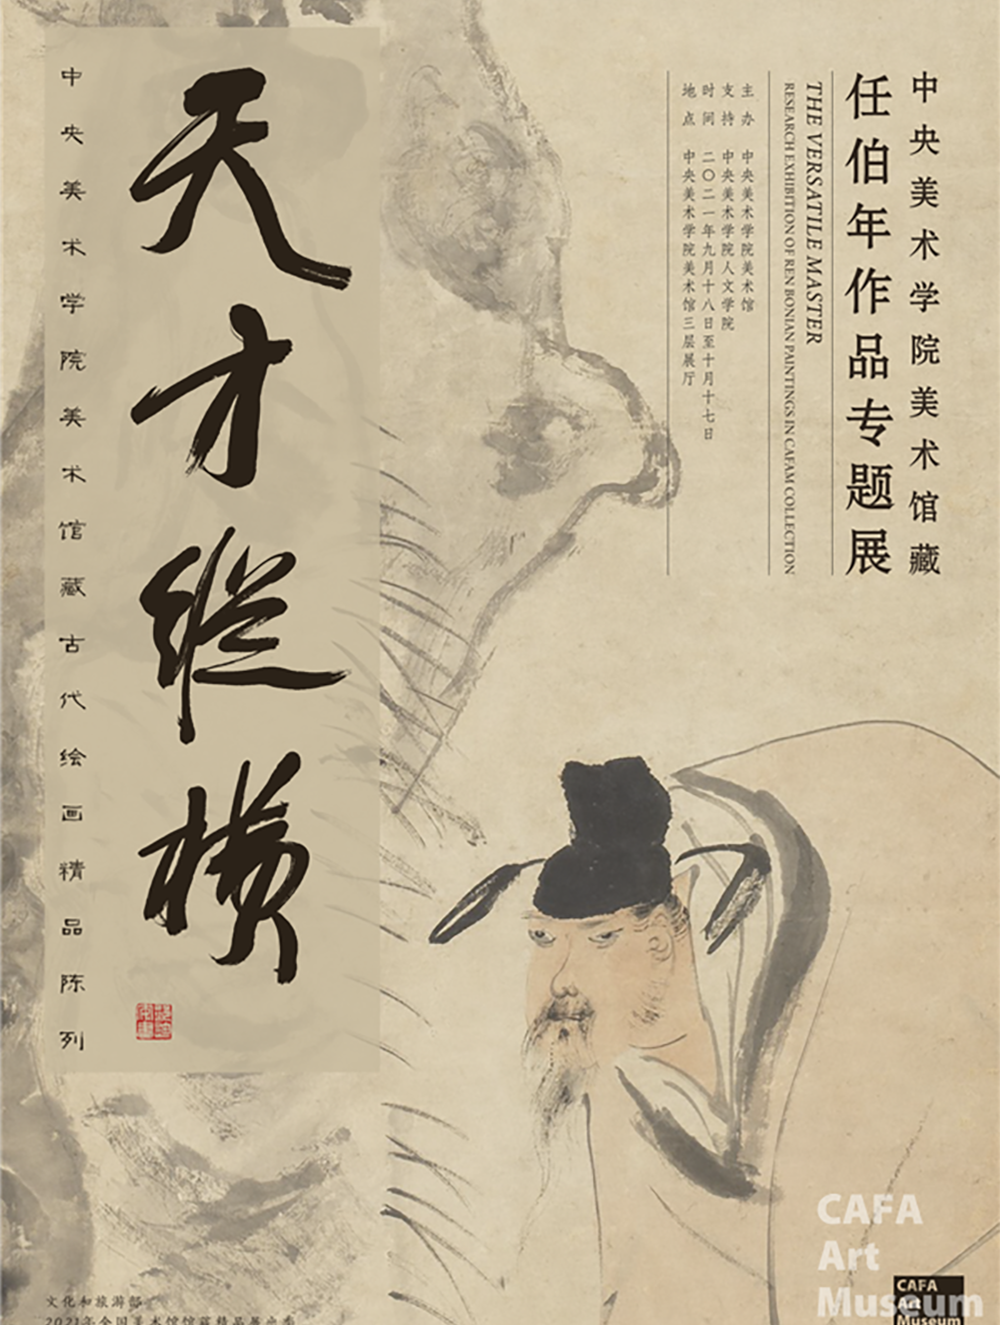 中央美术学院美术馆藏
任伯年作品专题展
THE VERSATILE MASTER
RESEARCH EXHIBITION OF REN BONIAN PAINTINGS IN CAFAM COLLECTION
主办 中央美术学院美术馆
支持 中央美术学院人文学院
时间 二〇二一年九月十八日至十月十七日
地点 中央美术学院美术馆三层展厅
天才纵横
中央美术学院美术馆藏古代绘画精品陈列
文化和旅游部
2021年全国美术馆馆藏精品展出季
CAFA
Art
Museum
CAFA
Art
Museum